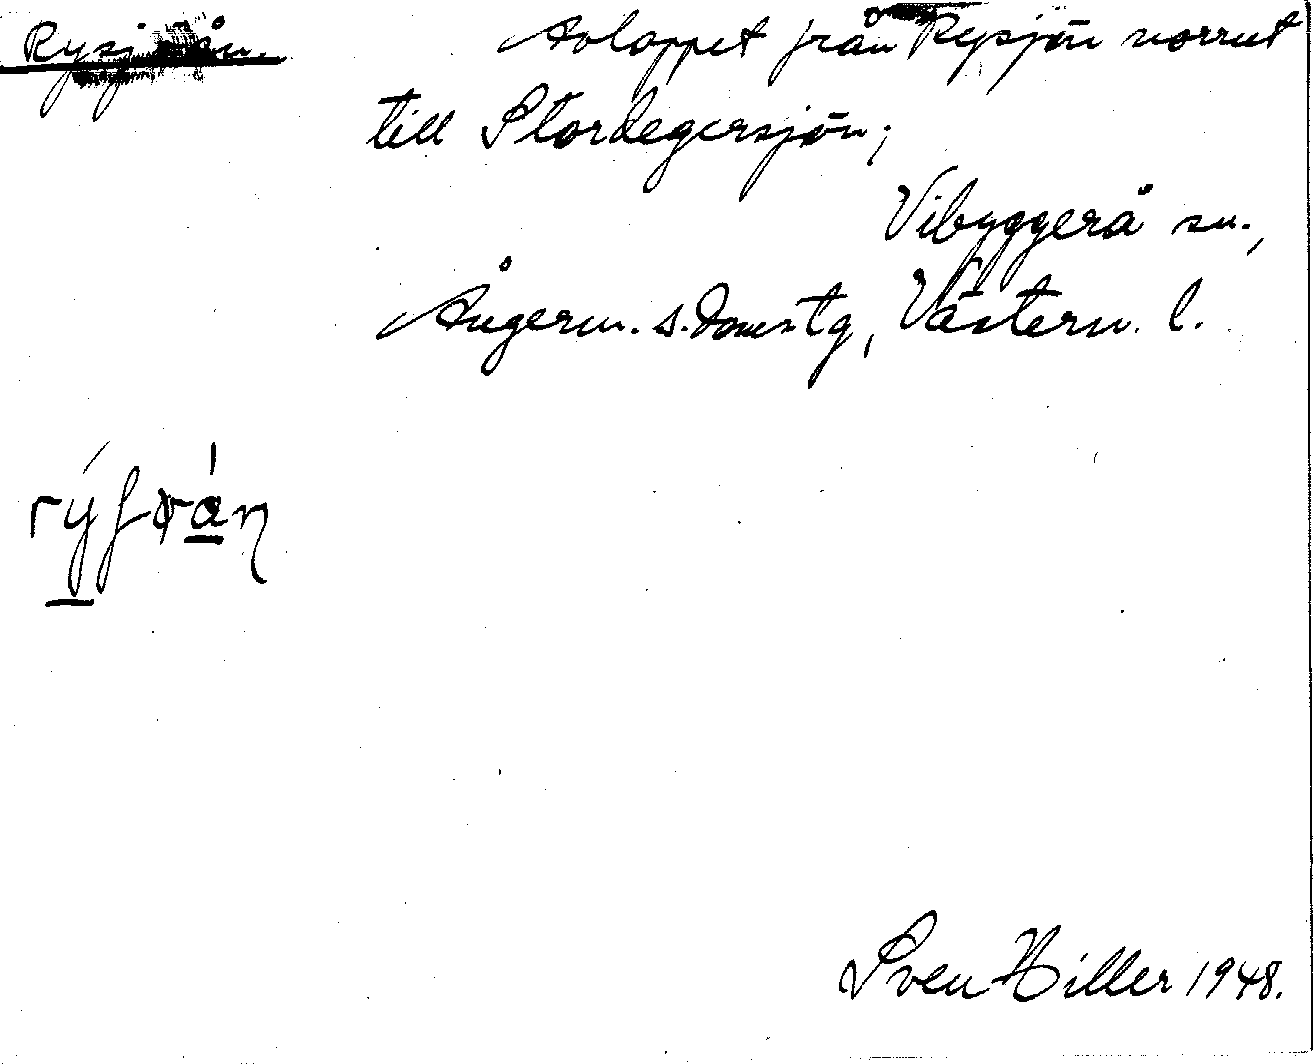 Rysjöån. Avloppet från Rysjön norrut
till Stordegersjön;
Vibyggerå sn.,
Ångerm. s. domstg, Västern. l.
Sven Hiller 1948.